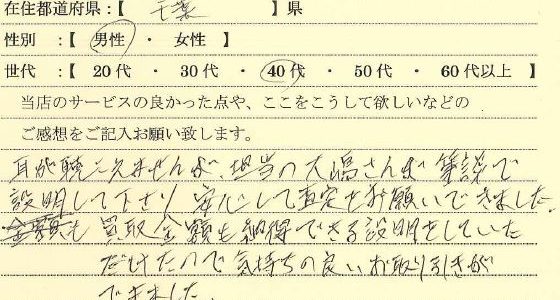 在住都道府県:【 千葉 】県
性別 :【 男性 ・ 女性 】
世代 :【 20代 ・ 30代 ・ 40代 ・ 50代 ・ 60代以上 】
当店のサービスの良かった点や、ここをこうして欲しいなどの
ご感想をご記入お願い致します。
耳が聴こえませんが、担当の大嶋さんが筆談で
説明して下さり 安心して査定をお願いできました。
金額も 買取金額も納得できる説明をしていた
だけたので気持ちの良いお取り引きが
できました。